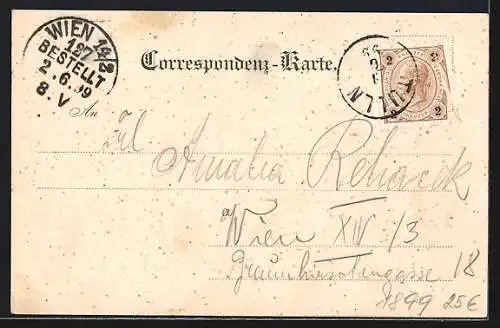 WIEN 14/3
127
BESTELLT
2.6.99
8.V
Correspondenz-Karte.
TULLN
99
2 2
2 2
An
Frl Amalia Rehacek
Wien XIV/3
18
1899 25€